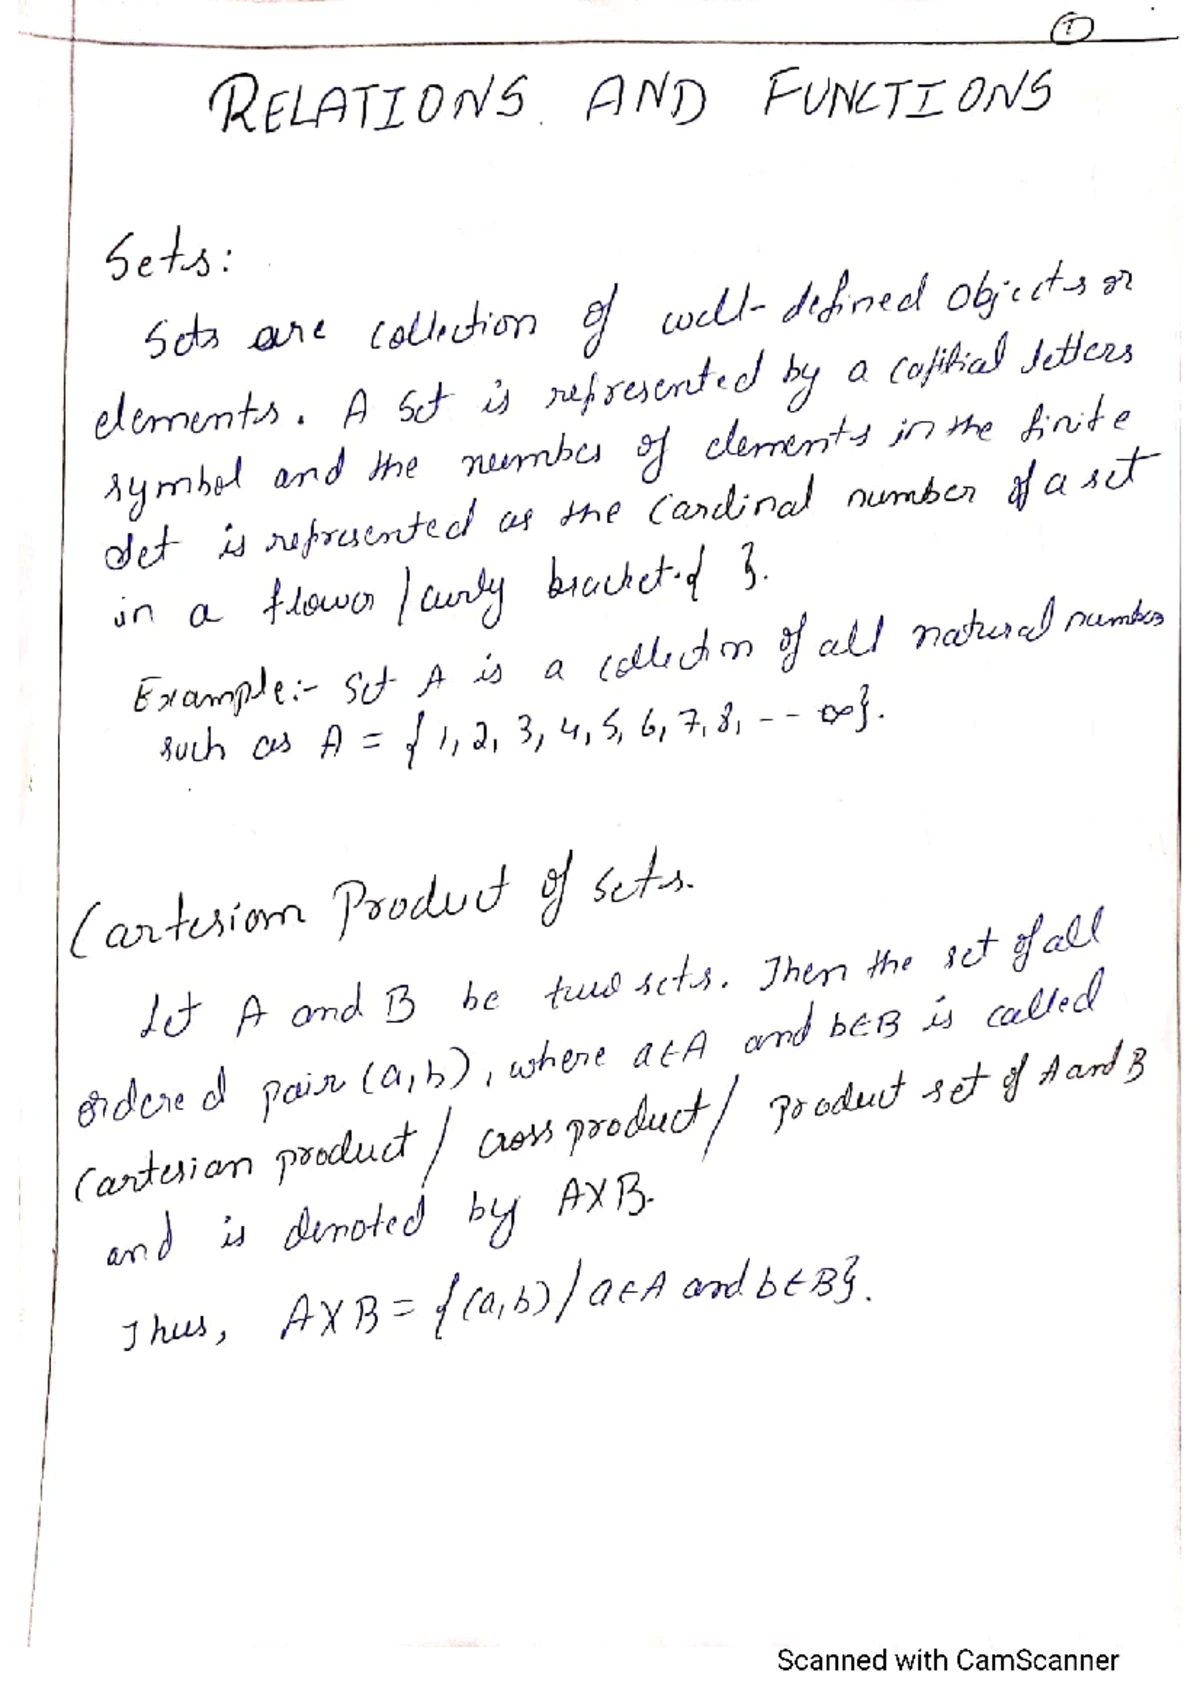 1
RELATIONS AND FUNCTIONS
Sets:
Sets are collection of well-defined objects or
elements. A Set is represented by a capital letters
symbol and the number of elements in the finite
set is represented as the cardinal number of a set
in a flower/curly bracket { }.
Example:- Set A is a collection of all natural number
such as A = {1, 2, 3, 4, 5, 6, 7, 8, -- ∞}.
Cartesian Product of Sets.
Let A and B be two sets. Then the set of all
ordered pair (a,b), where a∈A and b∈B is called
Cartesian product / cross product / product set of A and B
and is denoted by A×B.
Thus, A×B = {(a,b)/a∈A and b∈B}.
Scanned with CamScanner